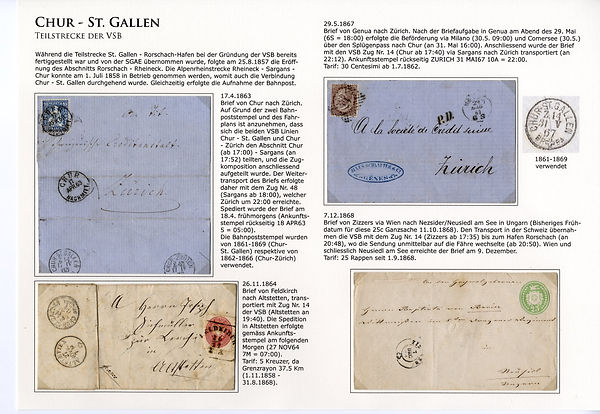 CHUR - ST. GALLEN
TEILSTRECKE DER VSB
Während die Teilstrecke St. Gallen - Rorschach-Hafen bei der Gründung der VSB bereits
fertiggestellt war und von der SGAE übernommen wurde, folgte am 25.8.1857 die Eröff-
nung des Abschnitts Rorschach - Rheineck. Die Alpenrheinstrecke Rheineck - Sargans -
Chur konnte am 1. Juli 1858 in Betrieb genommen werden, womit auch die Verbindung
Chur - St. Gallen durchgehend wurde. Gleichzeitig erfolgte die Aufnahme der Bahnpost.
17.4.1863
Brief von Chur nach Zürich.
Auf Grund der zwei Bahn-
poststempel und des Fahr-
plans ist anzunehmen, dass
sich die beiden VSB Linien
Chur - St. Gallen und Chur
- Zürich den Abschnitt Chur
(ab 17:00) - Sargans (an
17:52) teilten, und die Zug-
komposition anschliessend
aufgeteilt wurde. Der Weiter-
transport des Briefs erfolgte
daher mit dem Zug Nr. 48
(Sargans ab 18:00), welcher
Zürich um 22:00 erreichte.
Spediert wurde der Brief am
18.4. frühmorgens (Ankunfts-
stempel rückseitig 18 APR63
5 = 05:00).
Die Bahnpoststempel wurden
von 1861-1869 (Chur-
St. Gallen) respektive von
1862-1866 (Chur-Zürich)
verwendet.
CHUR
NACHMITT
Zürich
26.11.1864
Brief von Feldkirch
nach Altstetten, trans-
portiert mit Zug Nr. 14
der VSB (Altstetten an
19:40). Die Spedition
in Altstetten erfolgte
gemäss Ankunfts-
stempel am folgenden
Morgen (27 NOV64
7M = 07:00).
Tarif: 5 Kreuzer, da
Grenzrayon 37.5 Km
(1.11.1858 -
31.8.1868).
Altstetten
29.5.1867
Brief von Genua nach Zürich. Nach der Briefaufgabe in Genua am Abend des 29. Mai
(6S = 18:00) erfolgte die Beförderung via Milano (30.5. 09:00) und Comersee (30.5.)
über den Splügenpass nach Chur (an 31. Mai 16:00). Anschliessend wurde der Brief
mit den VSB Zug Nr. 14 (Chur ab 17:40) via Sargans nach Zürich transportiert (an
22:12). Ankunftsstempel rückseitig ZURICH 31 MAI67 10A = 22:00.
Tarif: 30 Centesimi ab 1.7.1862.
P.D.
A la Société de Crédit suisse
Zürich
CHUR-ST.GALLEN
14
67
1861-1869
verwendet
7.12.1868
Brief von Zizzers via Wien nach Nezsider/Neusiedl am See in Ungarn (Bisheriges Früh-
datum für diese 25c Ganzsache 11.10.1868). Den Transport in der Schweiz übernah-
men die VSB mit dem Zug Nr. 14 (Zizzers ab 17:35) bis zum Hafen Rorschach (an
20:48), wo die Sendung unmittelbar auf die Fähre wechselte (ab 20:50). Wien und
schliesslich Neusiedl am See erreichte der Brief am 9. Dezember.
Tarif: 25 Rappen seit 1.9.1868.